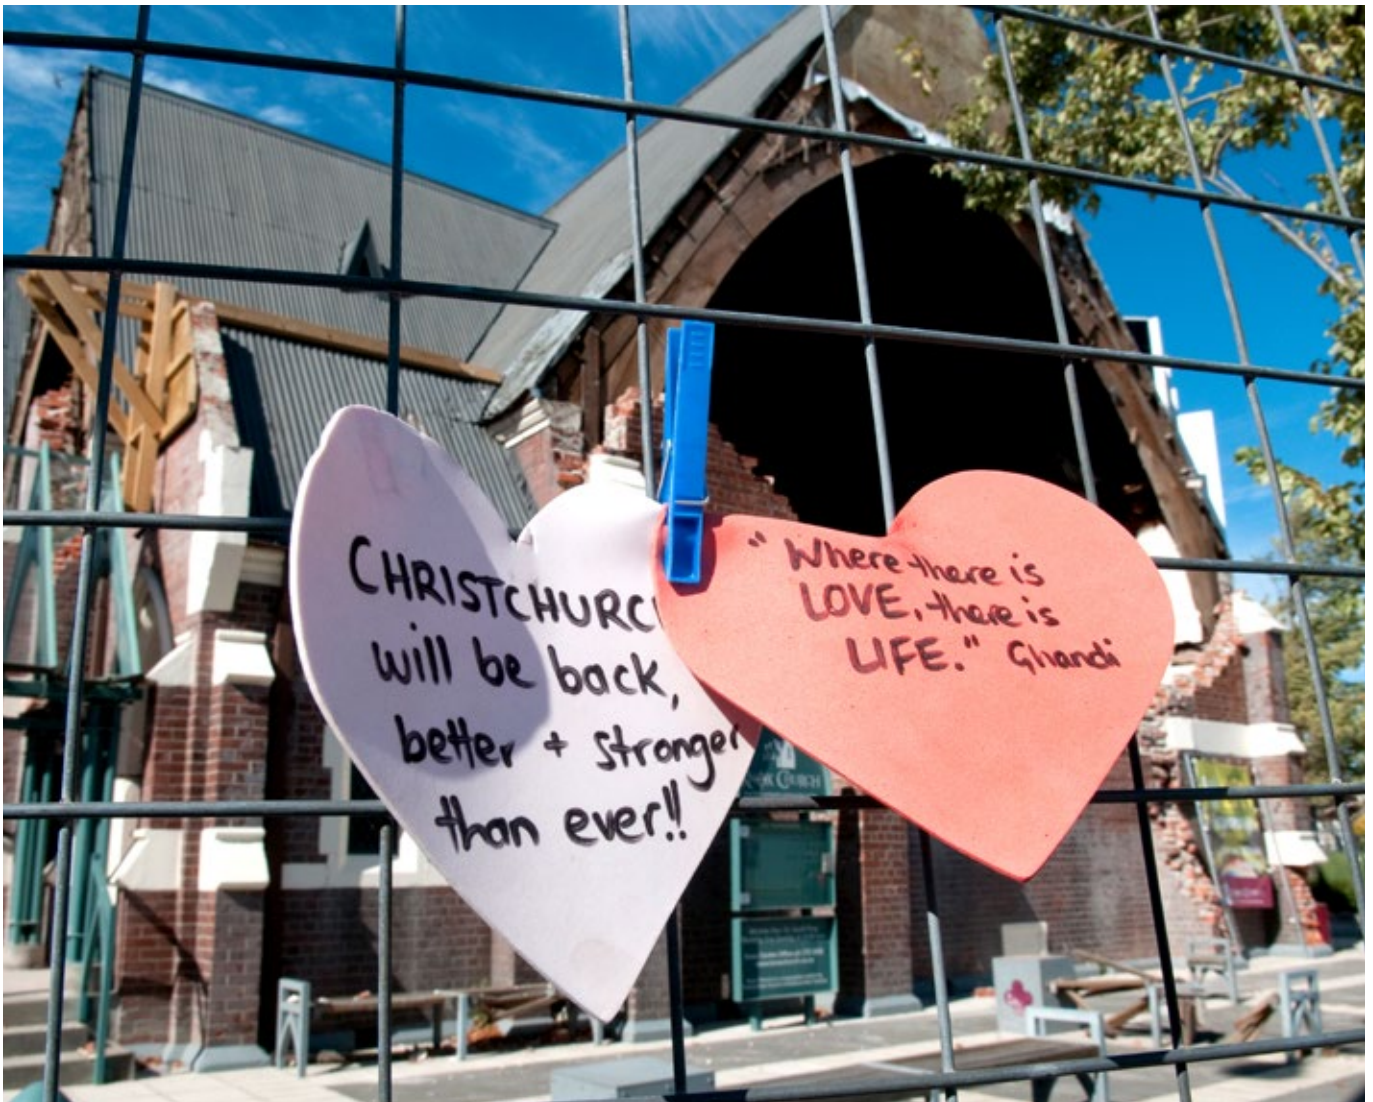 CHRISTCHURC
will be back,
better + stronger
than ever!!
"Where there is
LOVE, there is
LIFE." Ghandi
CHURCH